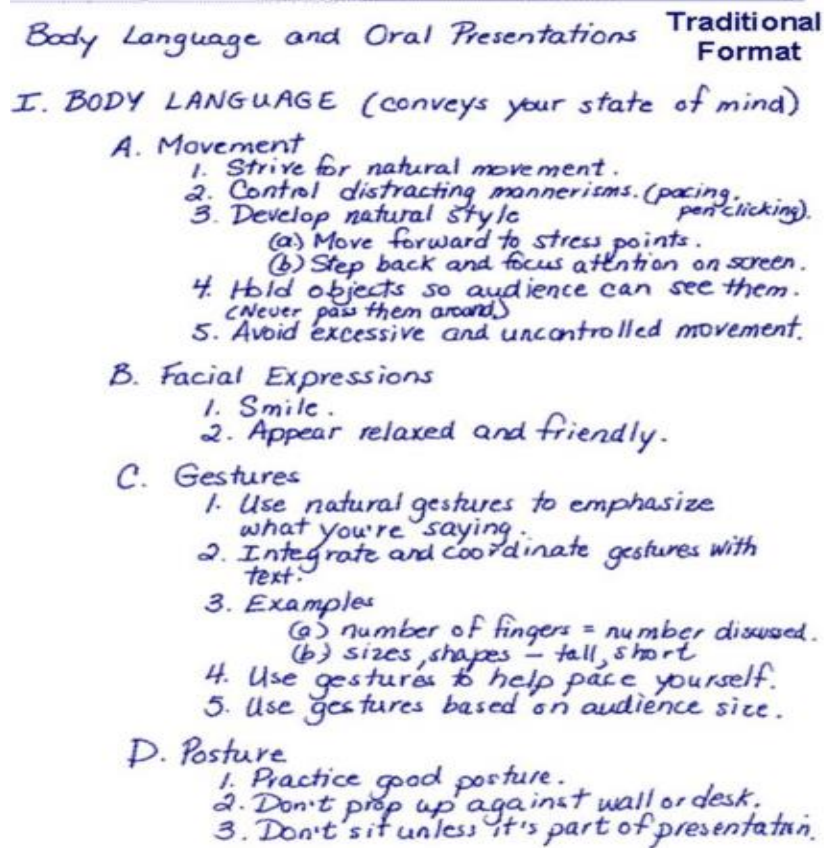 Body Language and Oral Presentations Traditional
Format
I. BODY LANGUAGE (conveys your state of mind)
A. Movement
1. Strive for natural movement.
2. Control distracting mannerisms. (pacing,
pen clicking).
3. Develop natural style
(a) Move forward to stress points.
(b) Step back and focus attention on screen.
4. Hold objects so audience can see them.
(Never pass them around)
5. Avoid excessive and uncontrolled movement.
B. Facial Expressions
1. Smile.
2. Appear relaxed and friendly.
C. Gestures
1. Use natural gestures to emphasize
what you're saying.
2. Integrate and coordinate gestures with
text.
3. Examples
(a) number of fingers = number discussed.
(b) sizes, shapes – tall, short
4. Use gestures to help pace yourself.
5. Use gestures based on audience size.
D. Posture
1. Practice good posture.
2. Don't prop up against wall or desk.
3. Don't sit unless it's part of presentation.